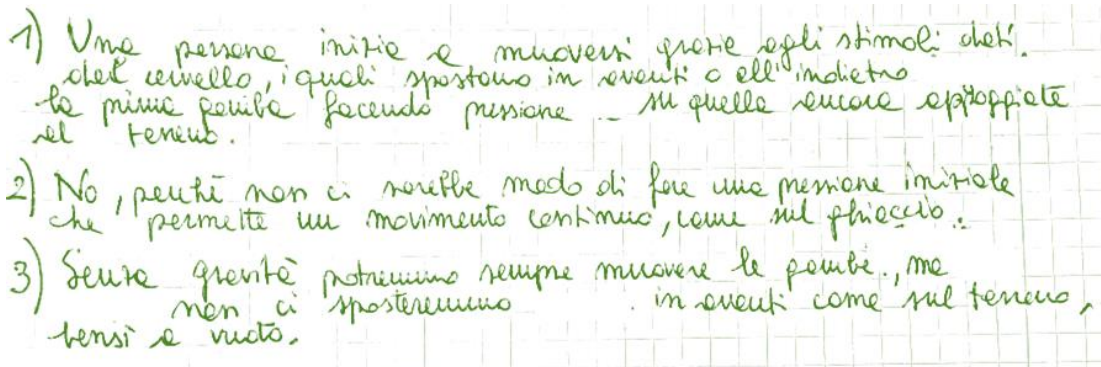 1) Una persona inizia a muoversi grazie agli stimoli dati
dal cervello, i quali spostano in avanti o all'indietro
la prima gamba facendo pressione su quella ancora appoggiata
al terreno.
2) No, perché non ci sarebbe modo di fare una pressione iniziale
che permette un movimento continuo, come sul ghiaccio.
3) Senza gravità potremmo sempre muovere le gambe, ma
non ci sposteremmo in avanti come sul terreno,
bensì a vuoto.